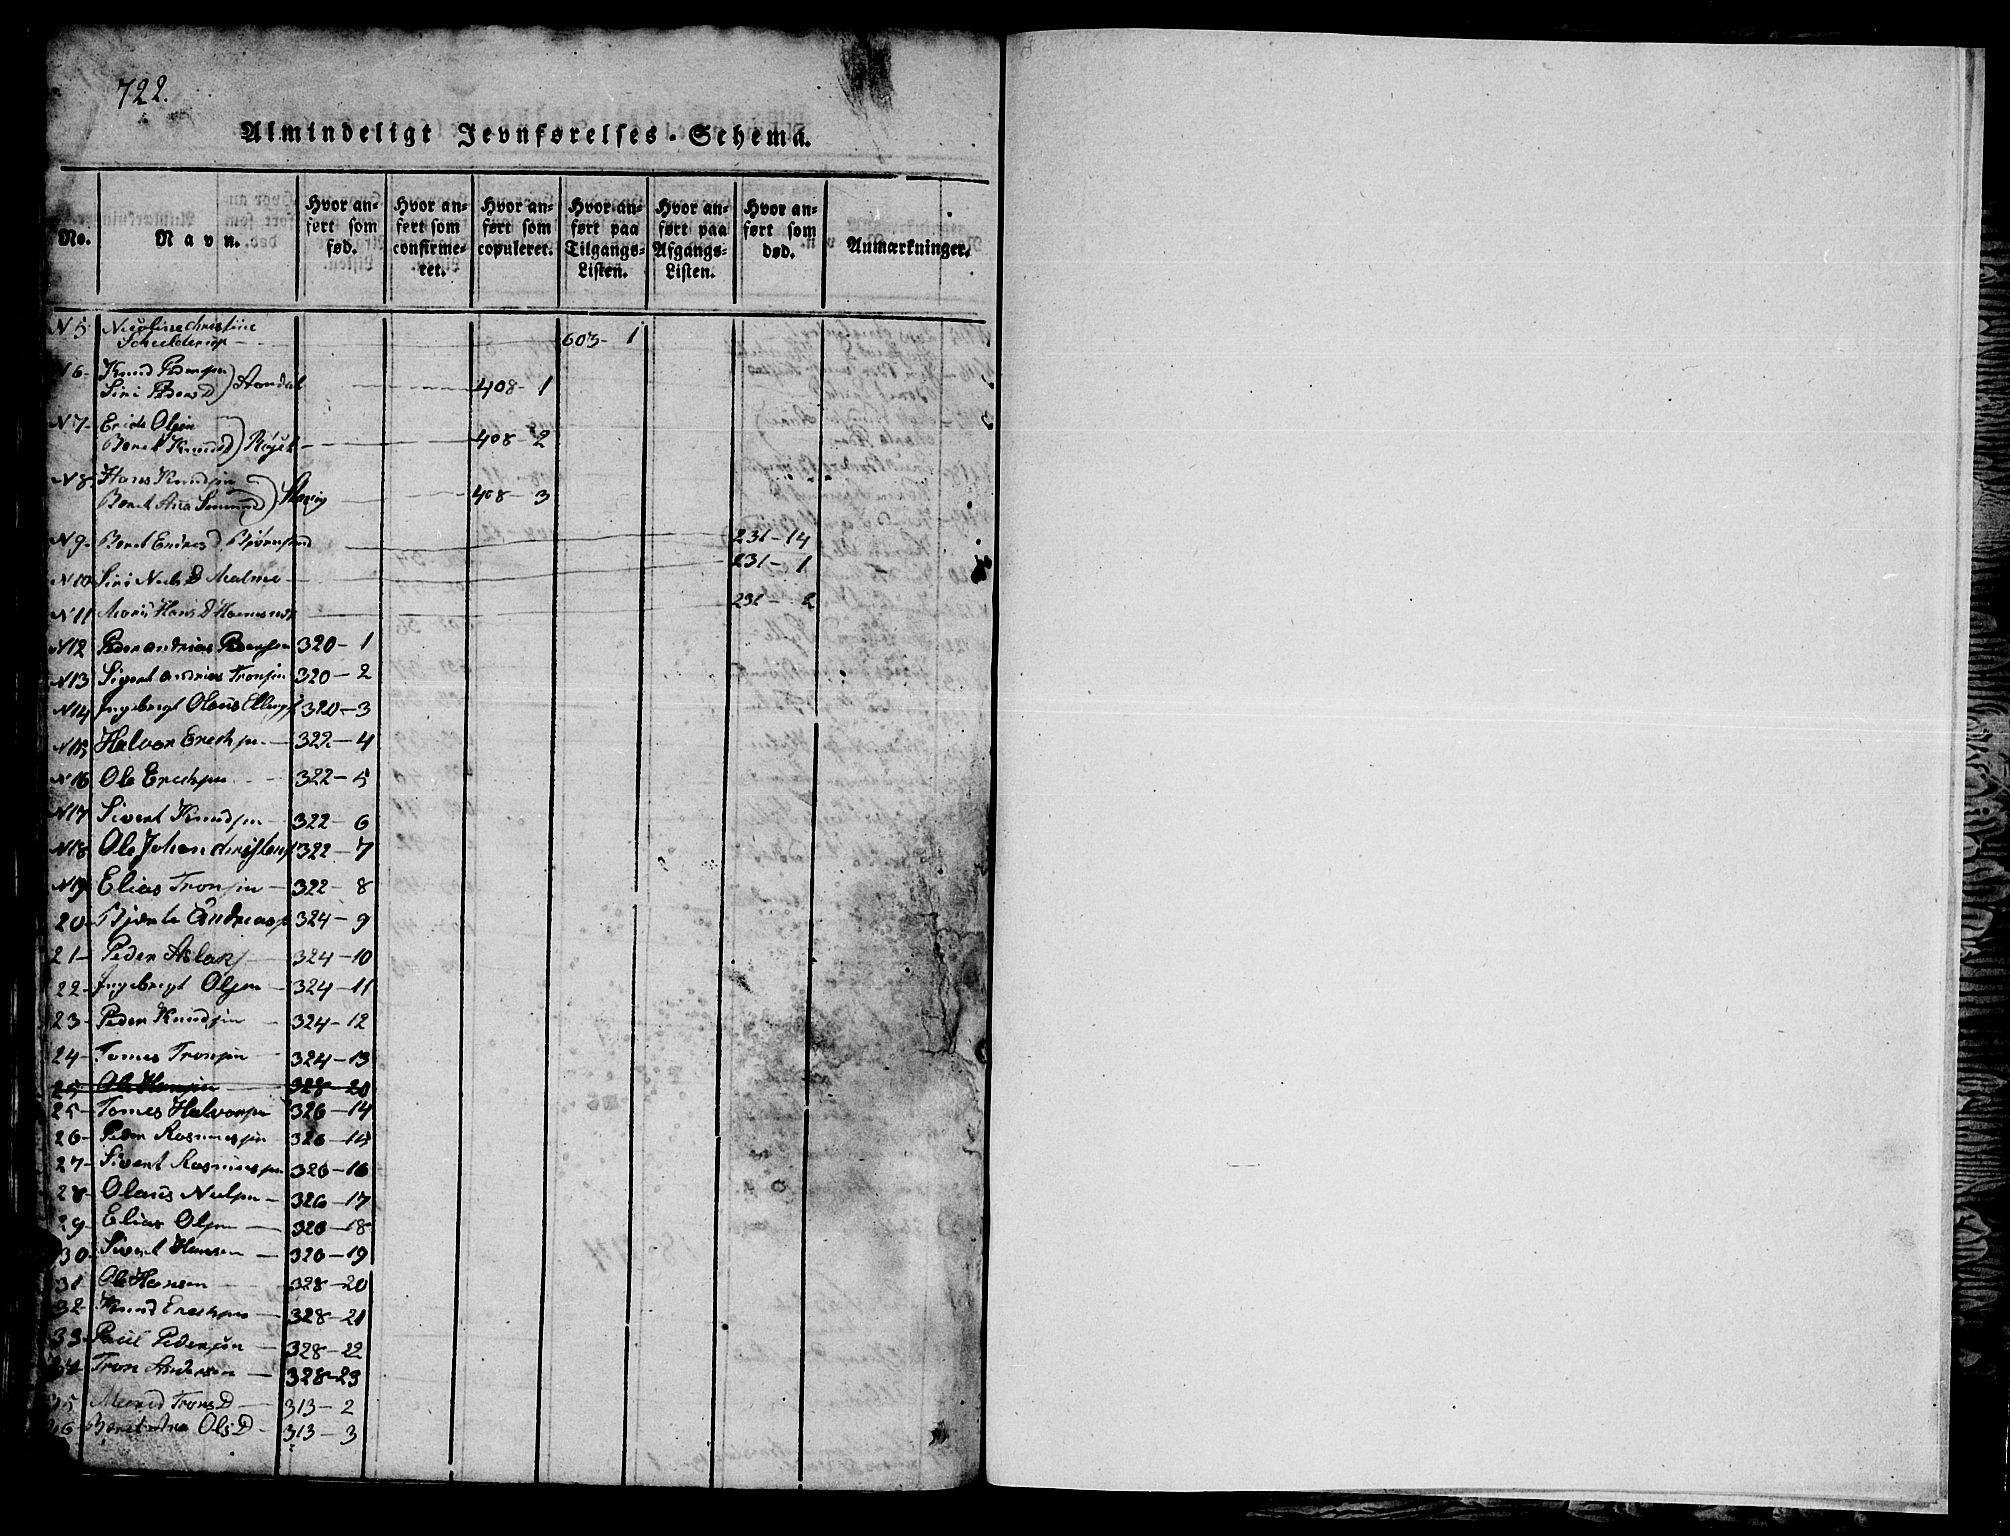 722.
Almindeligt Jevnførelses-Schema.
No.
Navn.
Hvor anført som fød.
Hvor anført som confirmeret.
Hvor anført som copuleret.
Hvor anført paa Tilgangs-Listen.
Hvor anført paa Afgangs-Listen.
Hvor anført som død.
Anmærkninger.
N 5 Nicoline Christine
603- 1
N 6- Knud Pedersen
Siri Peders D 408- 1
N 7- Erick Olsen
Beret Knuds D 408- 2
N 8- Hans Knudsen
Beret Ana 408- 3
N 9- Beret Endres D. Bjørnsund 231-14
N 10 Siri Niels D Malme 231- 1
N 11 Hans D 231- 2
N 12 Peder andrias Pedersen 320- 1
N 13 Sivert andrias Tronsen 320- 2
N 14 Ingebrigt Olaus 320-3
N 15 Halvor Erechsen 322-4
N 16 Ole Erechsen 322-5
N 17 Sivert Knudsen 322-6
N 18 Ole Johan 322-7
N 19 Elias Tronsen 322-8
20- Andreas 324-9
21- Peder Aslaks 324-10
22- Ingebrigt Olsen 324-11
23- Peder Knudsen 324-12
24- Tomes Tronsen 324-13
25 Ole Hansen 328-20
25- Tomes Halvorsen 326-14
26- Peder Rasmussen 326-15
27- Sivert Rasmussen 326-16
28- Olaus Nielsen 326-17
29- Elias Olsen 326-18
30- Sivert Hansen 326-19
31 Ole Hansen 328-20
32- Knud Erechsen 328-21
33- Paul Pedersen 328-22
34- Tron Andersen 328-23
35 Trons D 313- 2
36- Beret Ana Ols D 313- 3